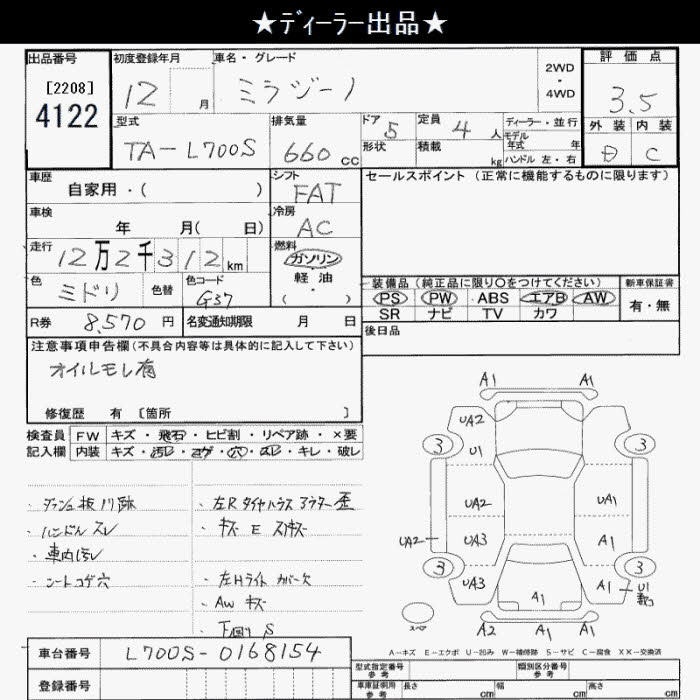 ★ディーラー出品★
出品番号
[2208]
4122
初度登録年月
12 月
車名・グレード
ミラジーノ
2WD
・
4WD
評価点
3.5
外装 内装
D C
型式
TA-L700S
排気量
660 cc
ドア 5
形状
定員 4 人
積載 kg
ディーラー・並行
モデル
年式 年
ハンドル 左・右
車歴
自家用・( )
シフト
FAT
セールスポイント (正常に機能するものに限ります)
車検
年 月( 日)
冷房
AC
走行
12万2千312km
燃料
ガソリン
軽油
・
( )
色
ミドリ
色替
色コード
G37
装備品 (純正品に限り〇をつけてください)
PS PW ABS エアB AW
SR ナビ TV カワ
新車保証書
有・無
R券 8,570 円
名変通知期限 月 日
後日品
注意事項申告欄(不具合内容等は具体的に記入して下さい)
オイルモレ有
修復歴 有 [箇所 ]
検査員
記入欄
FW キズ・飛石・ヒビ割・リペア跡・×要
内装 キズ・汚レ・コゲ・穴・スレ・キレ・破レ
・ダッシュ板ノリ跡
・ハンドルスレ
・車内汚レ
・シートコゲ穴
・キズ E
・左Hライト カバー欠
・AW キズ
・下回り S
A1 A1
UA2
3 3
U1
UA2 UA1
UA2
UA3 A1
3 3
UA3 A1 A1 U1
スペア
A2 A1
A-キズ E-エクボ U-凹み W-補修跡 S-サビ C-腐食 XX-交換済
車台番号 L700S-0168154
登録番号
型式指定番号
参考
類別区分番号
参考
車庫証明用
参考
長さ cm
幅 cm
高さ cm